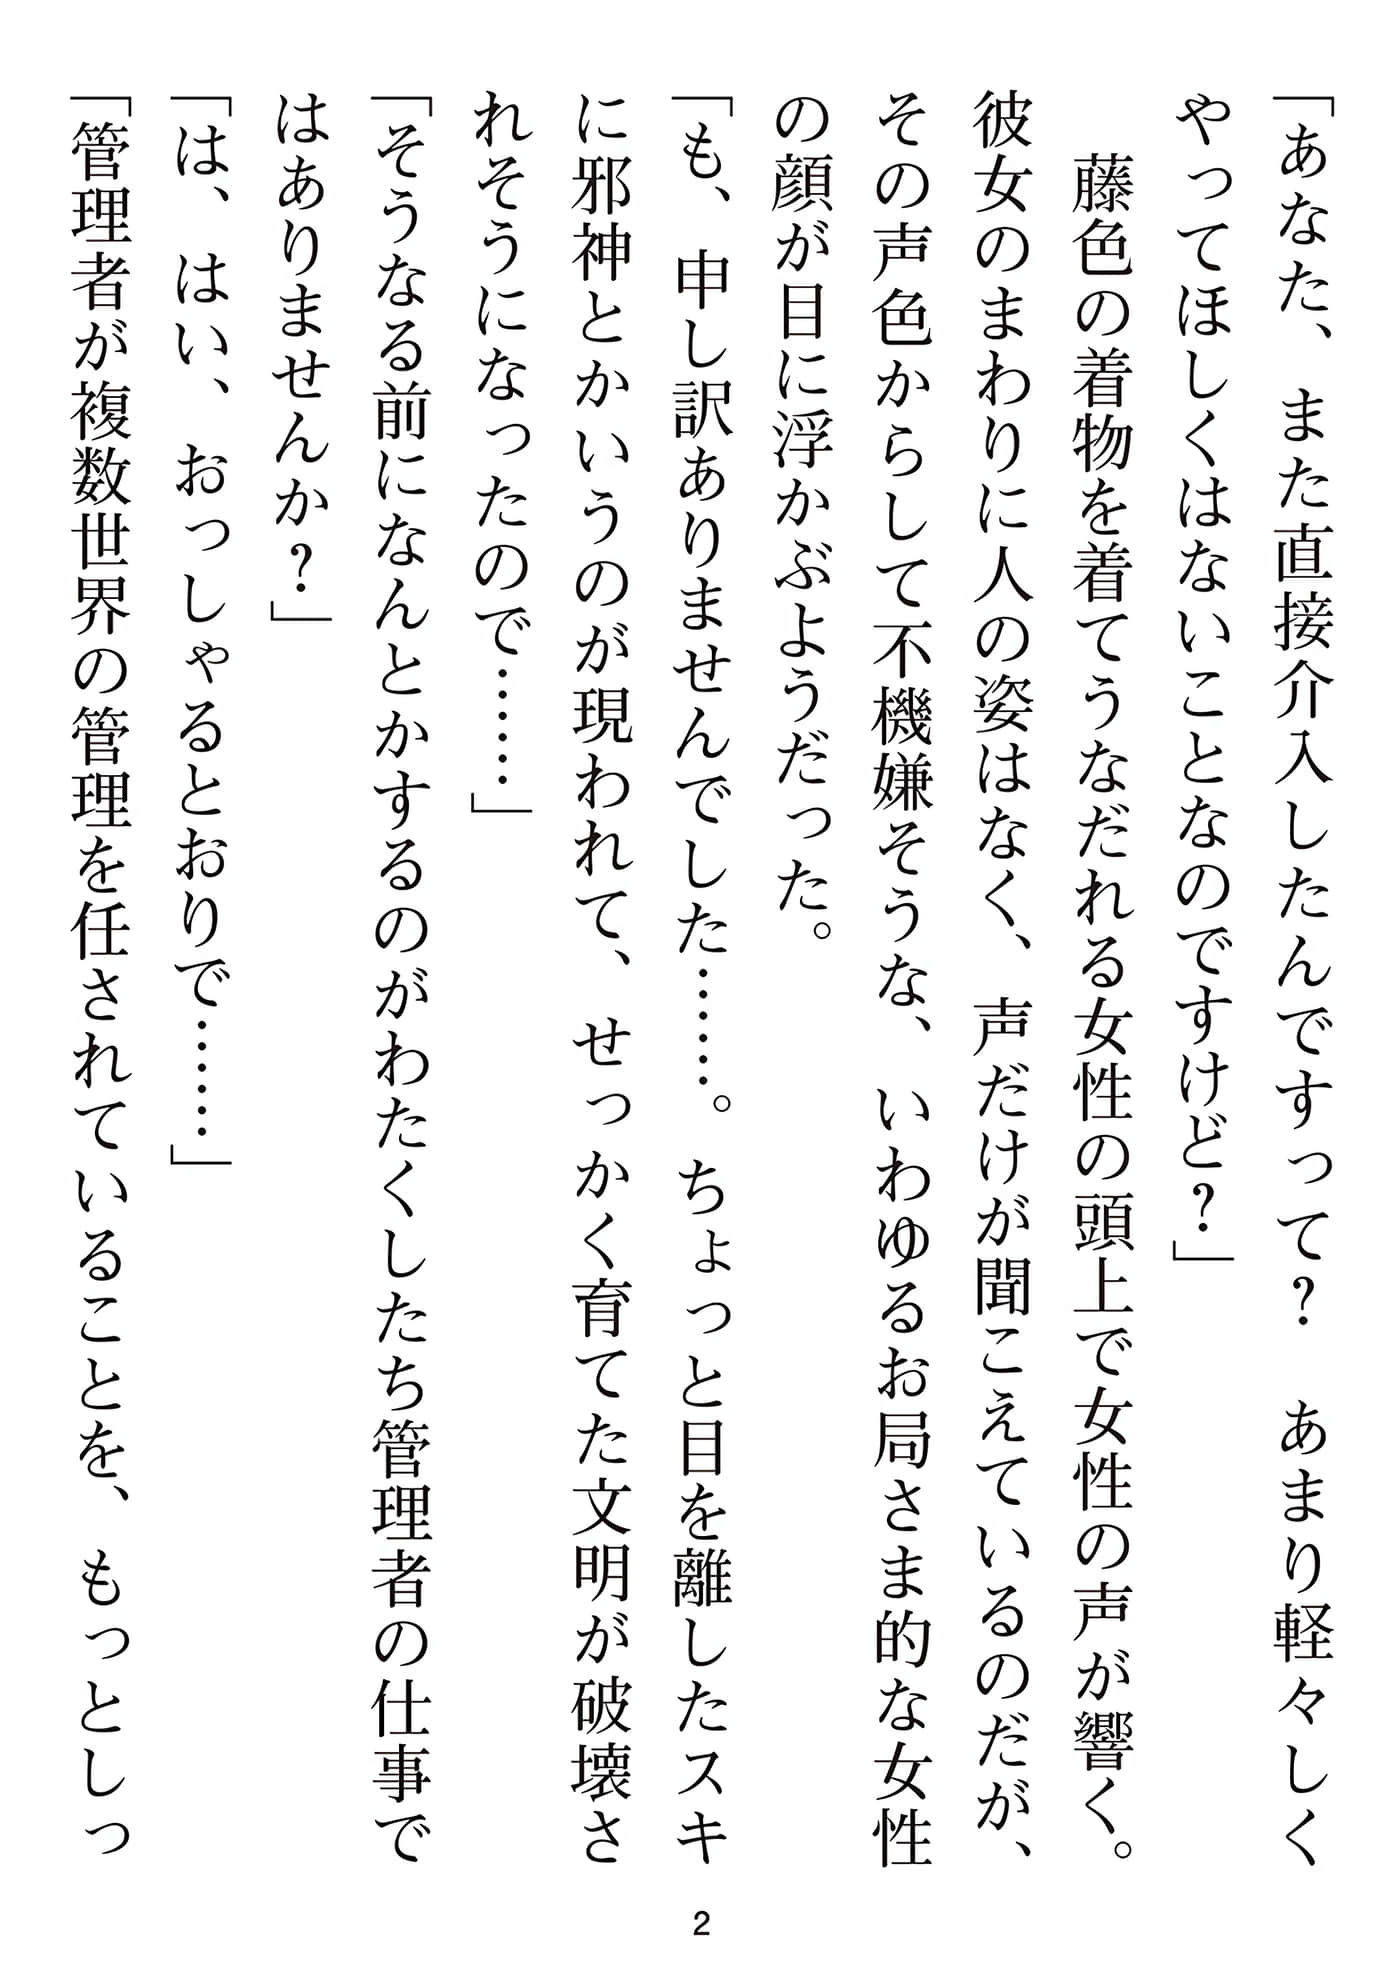 「あなた、また直接介入したんですって？　あまり軽々しく
やってほしくはないことなのですけど？」
　藤色の着物を着てうなだれる女性の頭上で女性の声が響く。
彼女のまわりに人の姿はなく、声だけが聞こえているのだが、
その声色からして不機嫌そうな、いわゆるお局さま的な女性
の顔が目に浮かぶようだった。
「も、申し訳ありませんでした……。ちょっと目を離したスキ
に邪神とかいうのが現われて、せっかく育てた文明が破壊さ
れそうになったので……」
「そうなる前になんとかするのがわたくしたち管理者の仕事で
はありませんか？」
「は、はい、おっしゃるとおりで……」
「管理者が複数世界の管理を任されていることを、もっとしっ
2